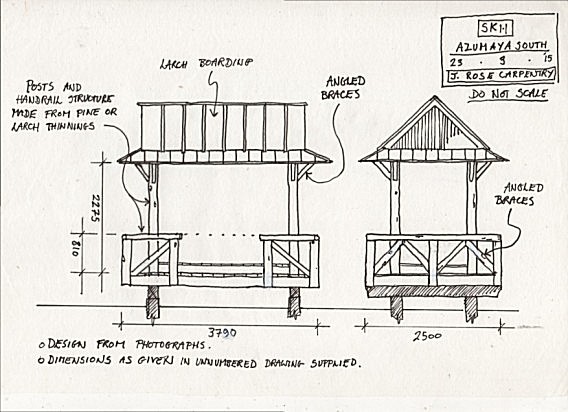 SK1.1
AZUMAYA SOUTH
23 . 9 . '15
J. ROSE CARPENTRY
DO NOT SCALE
LARCH BOARDING
POSTS AND
HANDRAIL STRUCTURE
MADE FROM PINE OR
LARCH THINNINGS
ANGLED
BRACES
ANGLED
BRACES
2275
810
3790
2500
O DESIGN FROM PHOTOGRAPHS.
O DIMENSIONS AS GIVEN IN UNNUMBERED DRAWING SUPPLIED.